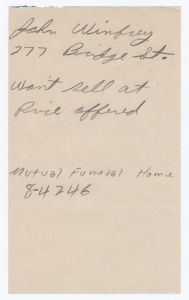 John Winfrey
277 Bridge St.
Won't sell at
Price offered
Mutual Funeral Home
8-4246